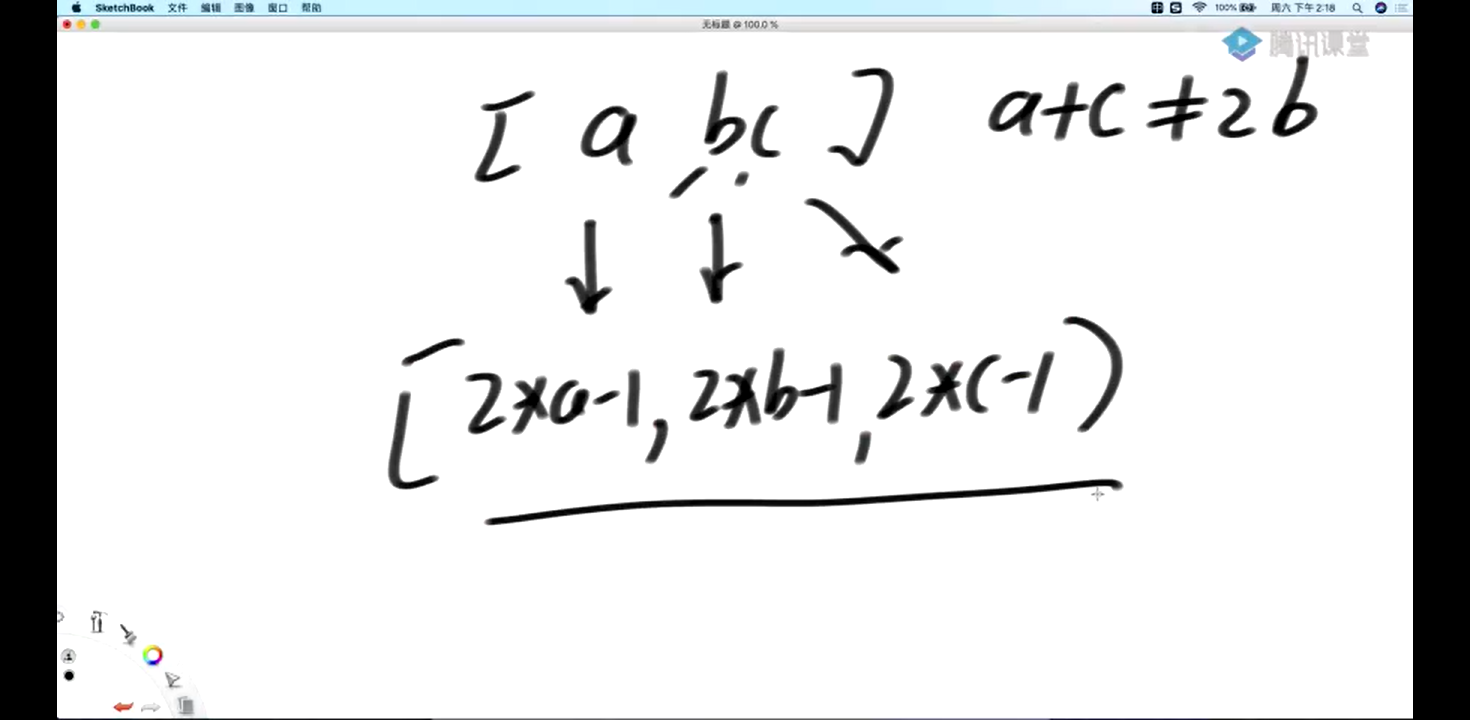 SketchBook 文件 编辑 图像 窗口 帮助 100% 周六 下午 2:18
无标题 @ 100.0 %
腾讯课堂
[ a bc ] a+c≠2b
[2*a-1, 2*b-1, 2*c-1)